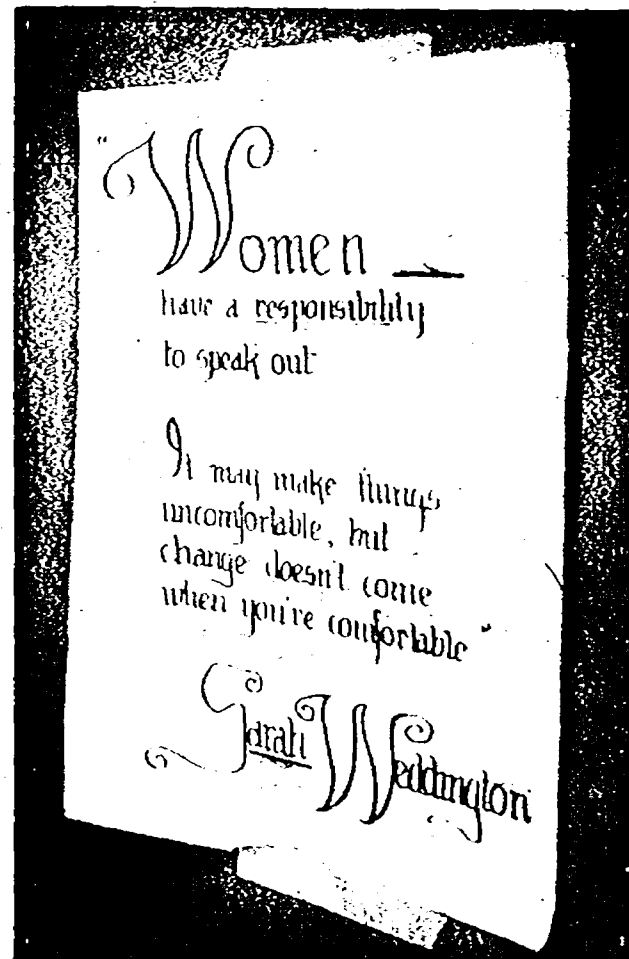 "Women —
have a responsibility
to speak out
It may make things
uncomfortable, but
change doesn't come
when you're comfortable"
Sarah Weddington